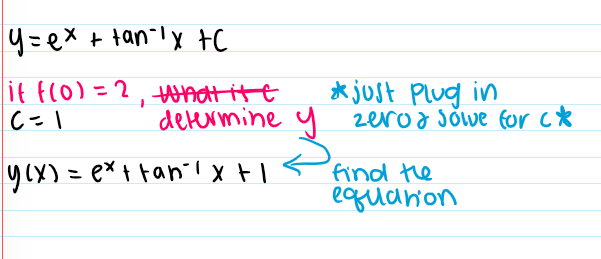 y = eˣ + tan⁻¹x + C
if f(0) = 2, what is c *just plug in
C = 1 determine y zero & solve for c*
y(x) = eˣ + tan⁻¹ x + 1 find the
equation